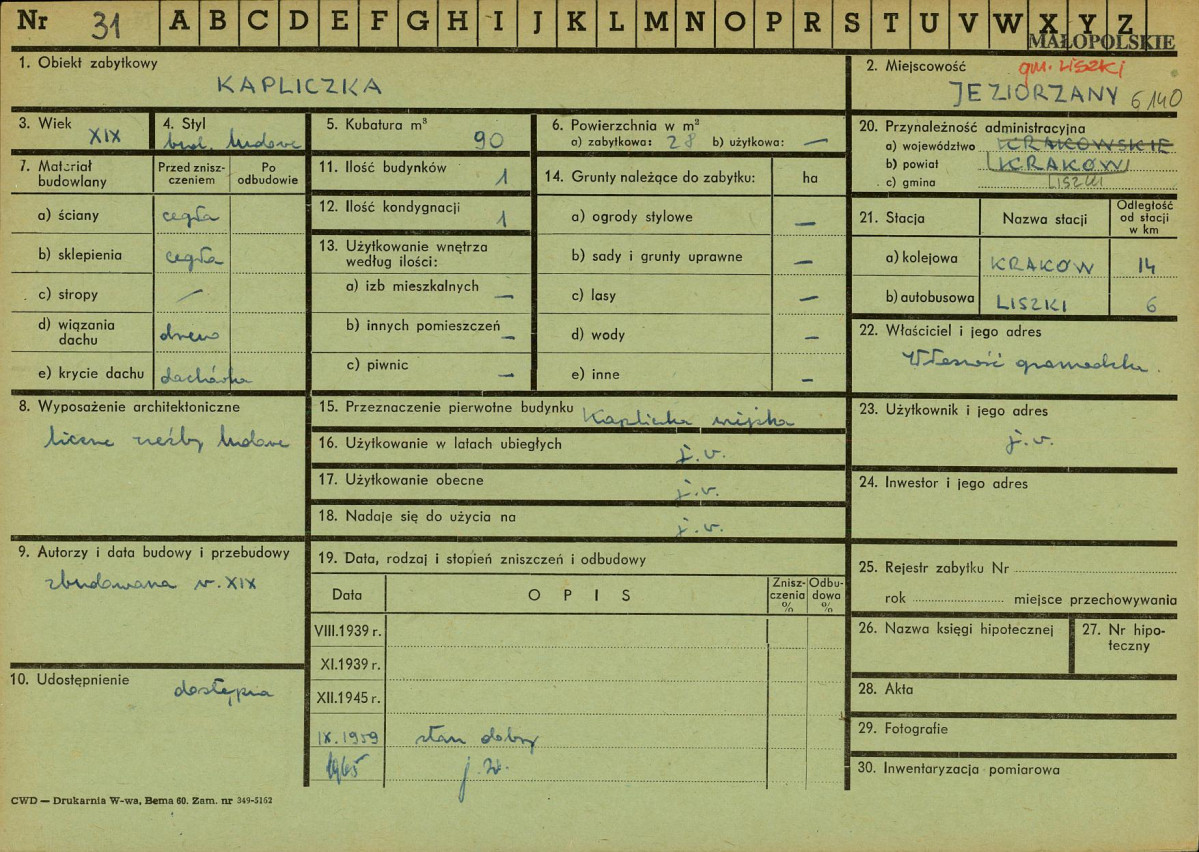 Nr 31 A B C D E F G H I J K L M N O P R S T U V W X Y Z
MAŁOPOLSKIE
1. Obiekt zabytkowy
KAPLICZKA
2. Miejscowość gm. LISZKI
JEZIORZANY 6140
3. Wiek XIX
4. Styl
bud. ludowe
5. Kubatura m³
90
6. Powierzchnia w m²
a) zabytkowa: 28 b) użytkowa: —
7. Materiał budowlany
Przed zniszczeniem
Po odbudowie
a) ściany cegła
b) sklepienia cegła
c) stropy —
d) wiązania dachu drewno
e) krycie dachu dachówka
8. Wyposażenie architektoniczne
liczne rzeźby ludowe
9. Autorzy i data budowy i przebudowy
zbudowana w. XIX
10. Udostępnienie
dostępna
11. Ilość budynków
1
12. Ilość kondygnacji
1
13. Użytkowanie wnętrza
według ilości:
a) izb mieszkalnych —
b) innych pomieszczeń —
c) piwnic —
14. Grunty należące do zabytku: ha
a) ogrody stylowe —
b) sady i grunty uprawne —
c) lasy —
d) wody —
e) inne —
15. Przeznaczenie pierwotne budynku Kapliczka wiejska
16. Użytkowanie w latach ubiegłych j.w.
17. Użytkowanie obecne j.w.
18. Nadaje się do użycia na j.w.
19. Data, rodzaj i stopień zniszczeń i odbudowy
Data OPIS Zniszczenia % Odbudowa %
VIII.1939 r.
XI.1939 r.
XII.1945 r.
IX.1959 stan dobry
1965 j.w.
20. Przynależność administracyjna
a) województwo KRAKOWSKIE
b) powiat KRAKÓW
c) gmina LISZKI
21. Stacja Nazwa stacji Odległość od stacji w km
a) kolejowa KRAKÓW 14
b) autobusowa LISZKI 6
22. Właściciel i jego adres
Własność gromadzka.
23. Użytkownik i jego adres
j.w.
24. Inwestor i jego adres
25. Rejestr zabytku Nr
rok miejsce przechowywania
26. Nazwa księgi hipotecznej
27. Nr hipoteczny
28. Akta
29. Fotografie
30. Inwentaryzacja pomiarowa
CWD — Drukarnia W-wa, Bema 60. Zam. nr 349-5162